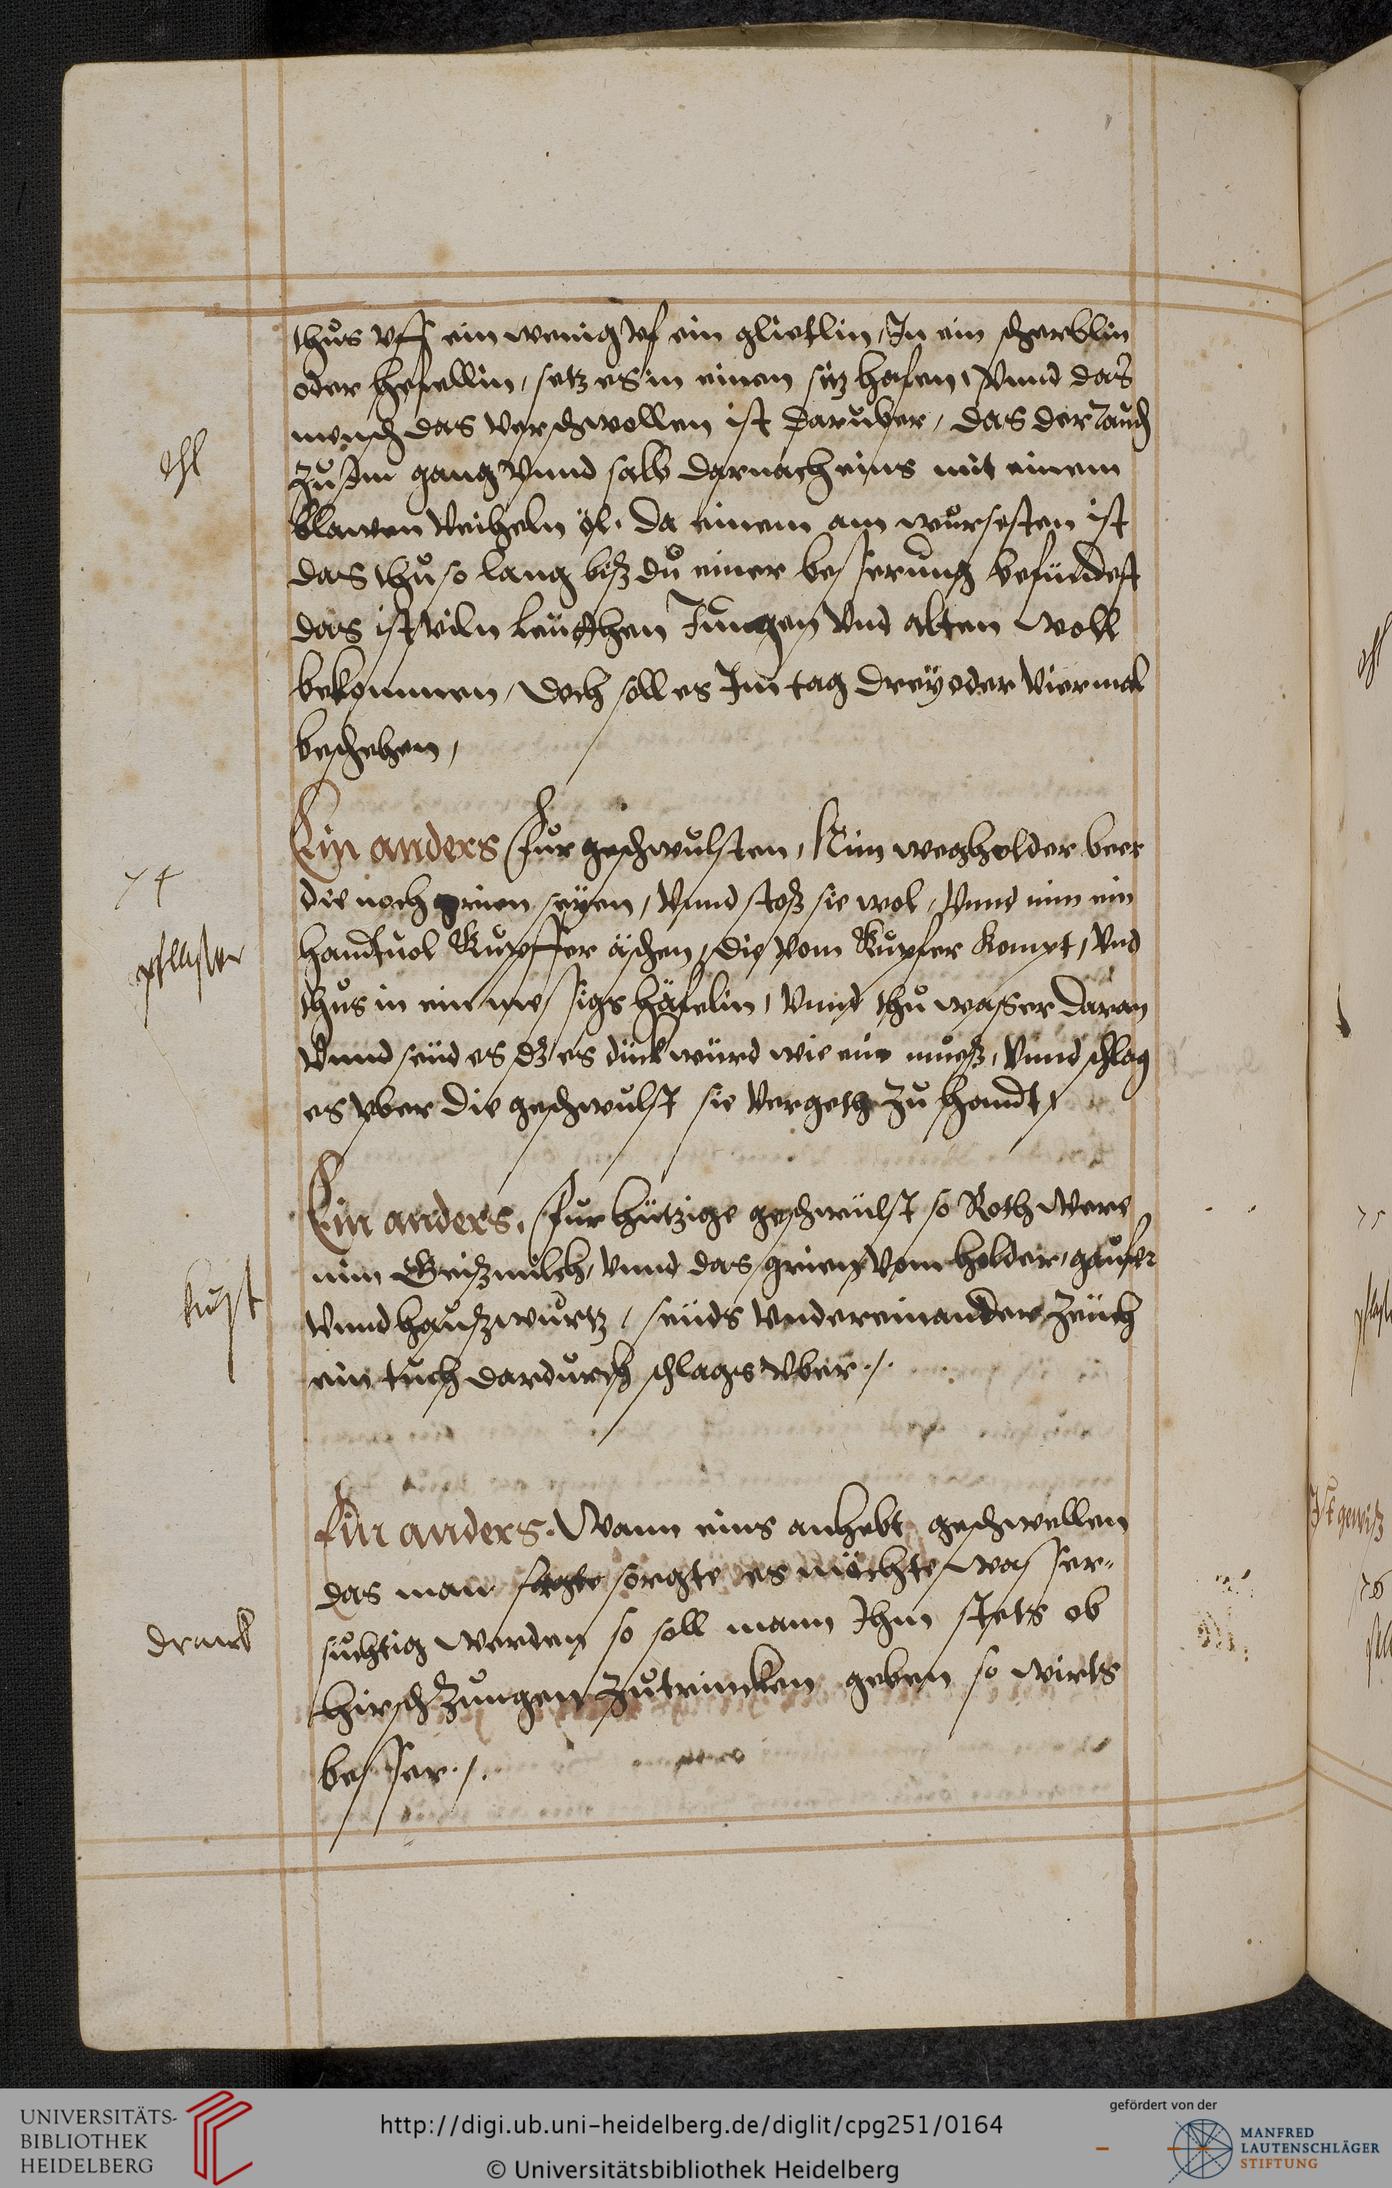 thus vff ein wenig vf ein glietlin, In ein scherblin
oder hefellin, setz es in einen sitz hafen, Vnnd das
mensch das verschwollen ist daruber, das der rauch
Zu Im gang Vnnd salb darnach eins mit einem
blawen veiheln öl. da einem am wursesten ist
das thu so lang biß du einer besserung befindest
das ist viln leuthen Jungen vnd alten woll
bekommen, doch soll es Im tag drey oder viermal
beschehen,
öhl
Ein anders fur geschwulsten, Nim wegholder beer
die noch grien seyen, Vnnd stoß sie wol, Vnnd nim ein
handtuol Kupffer äschen, die vom Kupfer kompt, Vnd
thus in ein messigs häfelin, Vnnd thu wasser daran
Vnnd seud es dz es dick würd wie ein mueß, Vnnd schlag
es yber die geschwulst sie vergeth zu handt
74
pflaster
Ein anders. fur hützige geschwulst so Roth were
nim Geißmilch, Vnnd das grien vom holder,
Vnnd haußwurtz, seuds vndereinander Zeuch
ein tuch dardurch schlags vber ./.
Ein anders. Wann eins anhebt geschwellen
das man sorgte es möchte wasser-
suchtig werden so soll mann Ihm stets ob
hirsch Zungen Zutrincken geben so wirts
besser ./.
dranck
Ist gewiß
UNIVERSITÄTS-
BIBLIOTHEK
HEIDELBERG
http://digi.ub.uni-heidelberg.de/diglit/cpg251/0164
© Universitätsbibliothek Heidelberg
gefördert von der
MANFRED
LAUTENSCHLÄGER
STIFTUNG